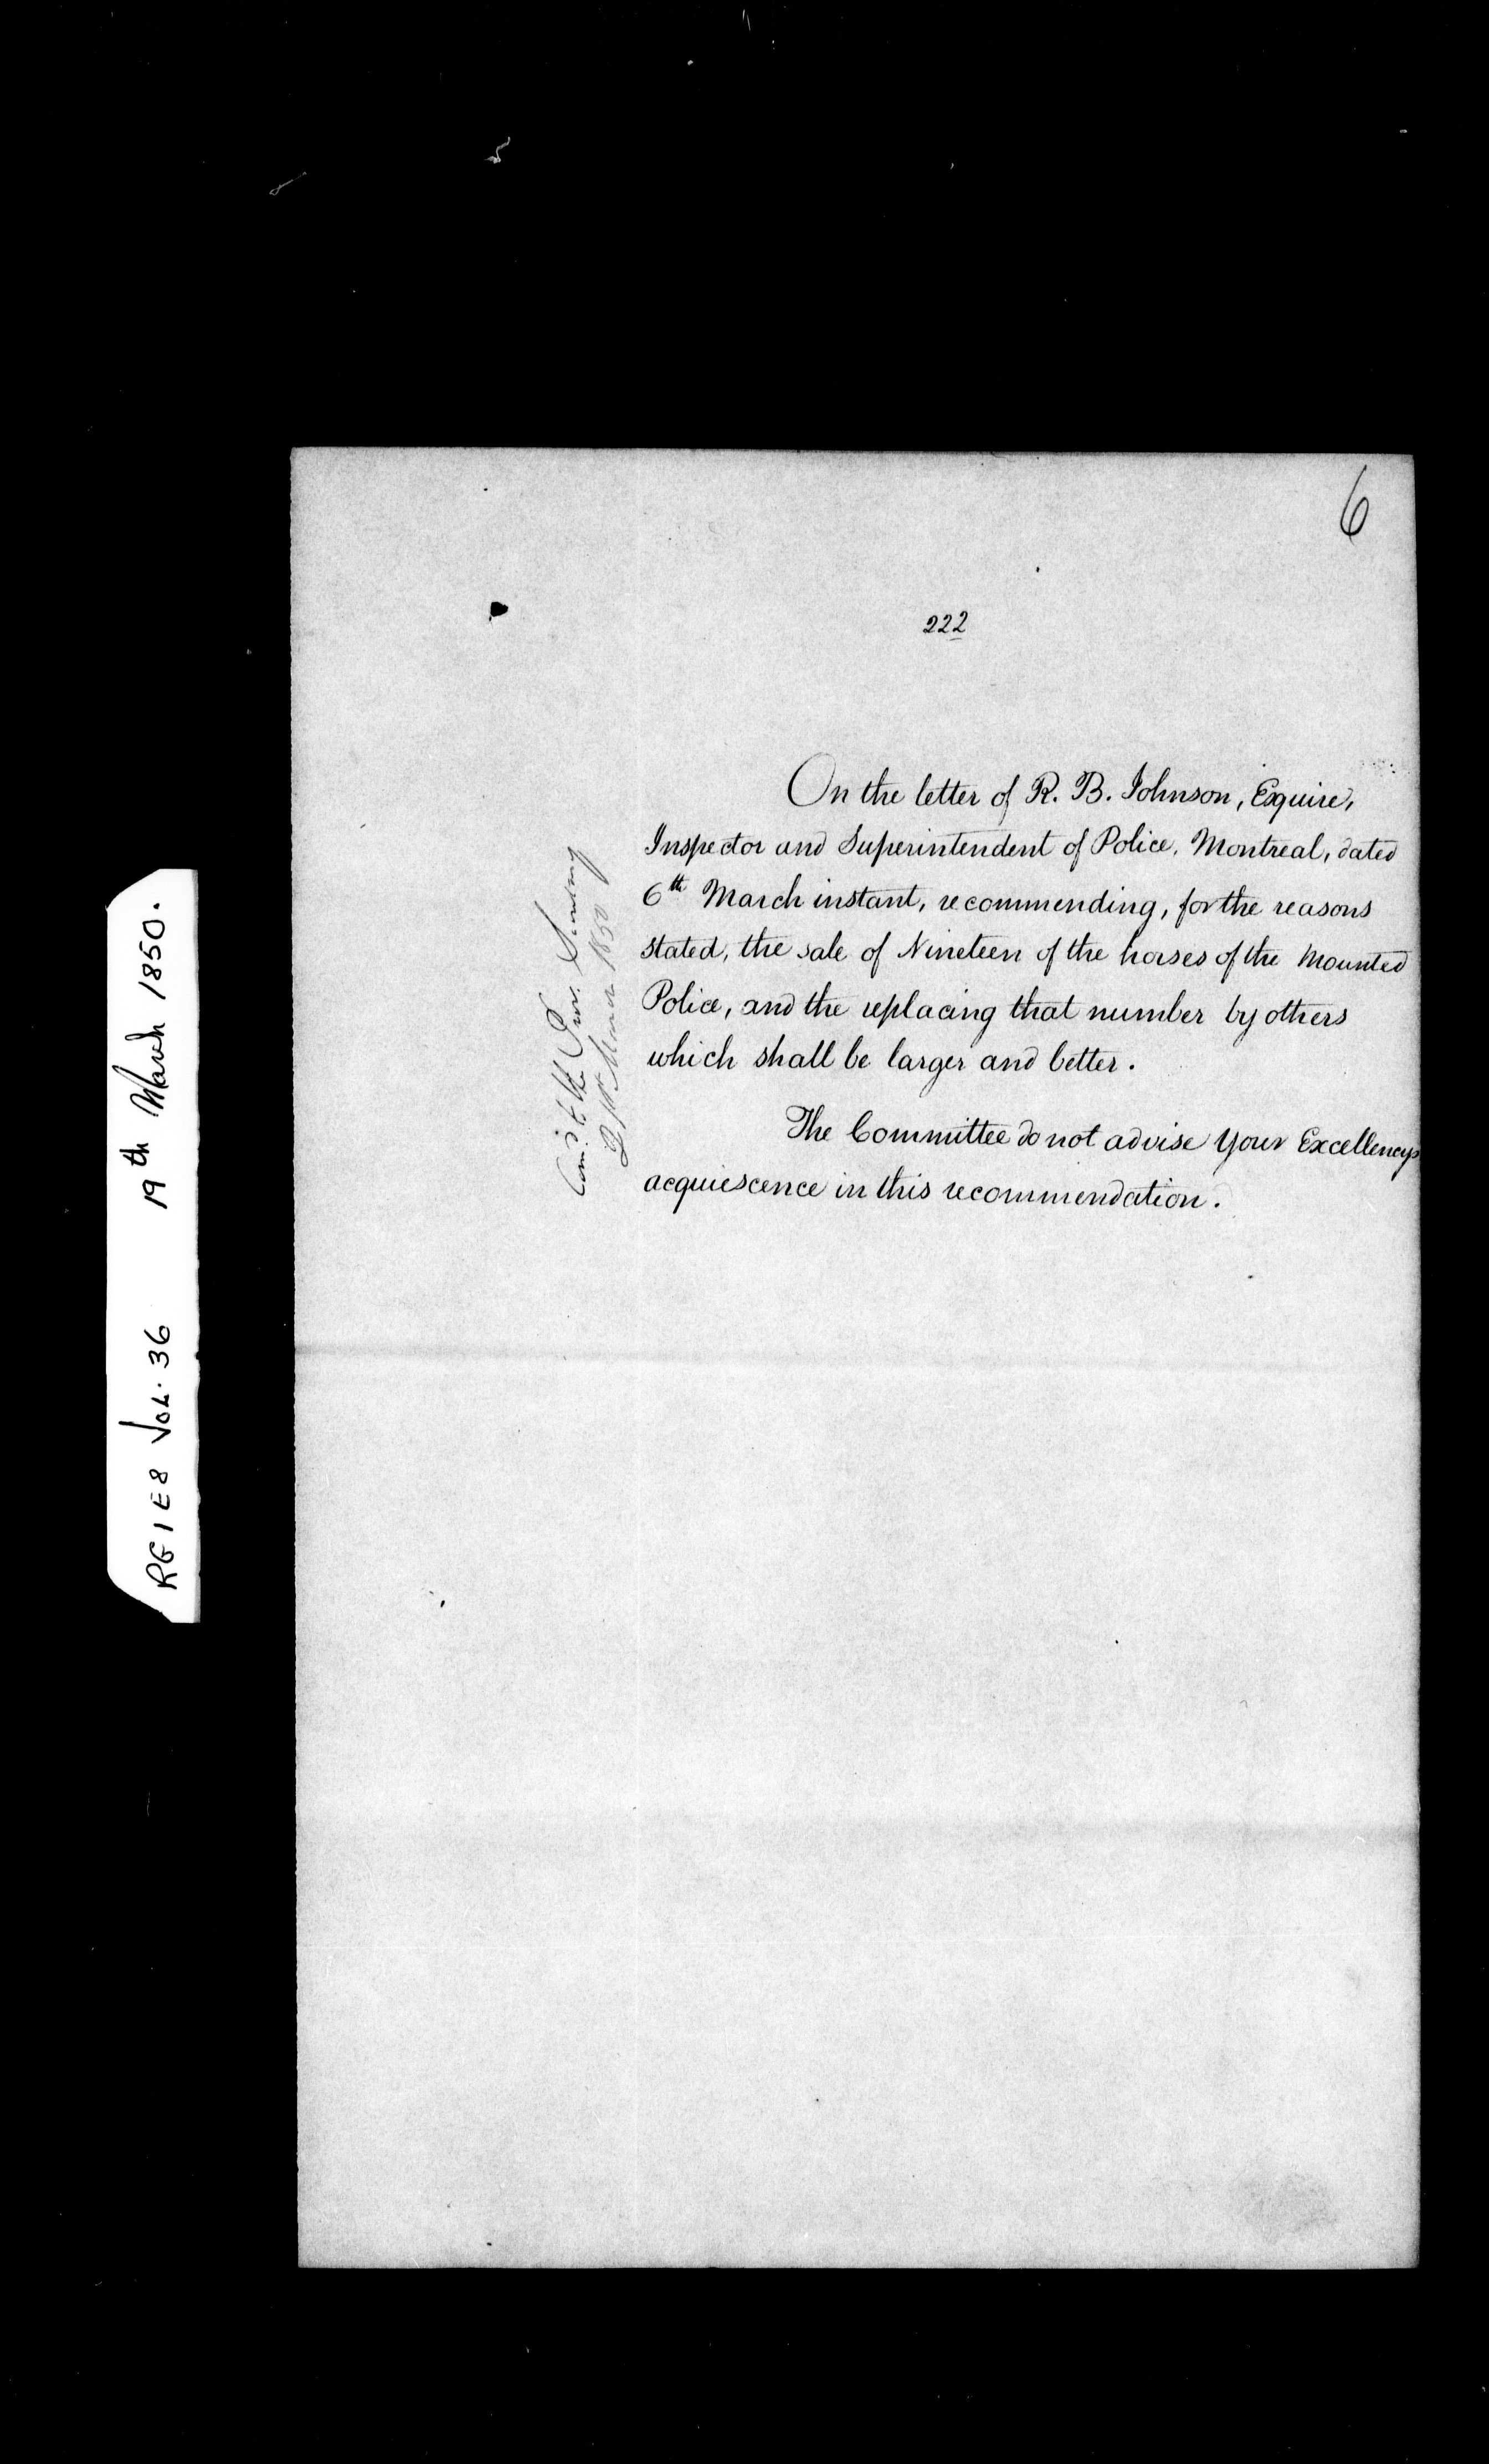 6
222
On the letter of R. B. Johnson, Esquire,
Inspector and Superintendent of Police, Montreal, dated
6th March instant, recommending, for the reasons
stated, the sale of Nineteen of the horses of the Mounted
Police, and the replacing that number by others
which shall be larger and better.
The Committee do not advise Your Excellency's
acquiescence in this recommendation.
to the
1850
RG1E8 VOL. 36 19th March 1850.